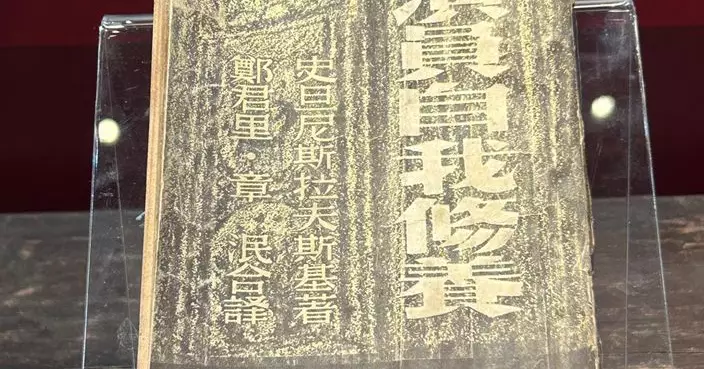 演員自我修養
史旦尼斯拉夫斯基著
鄭君里·章泯合譯